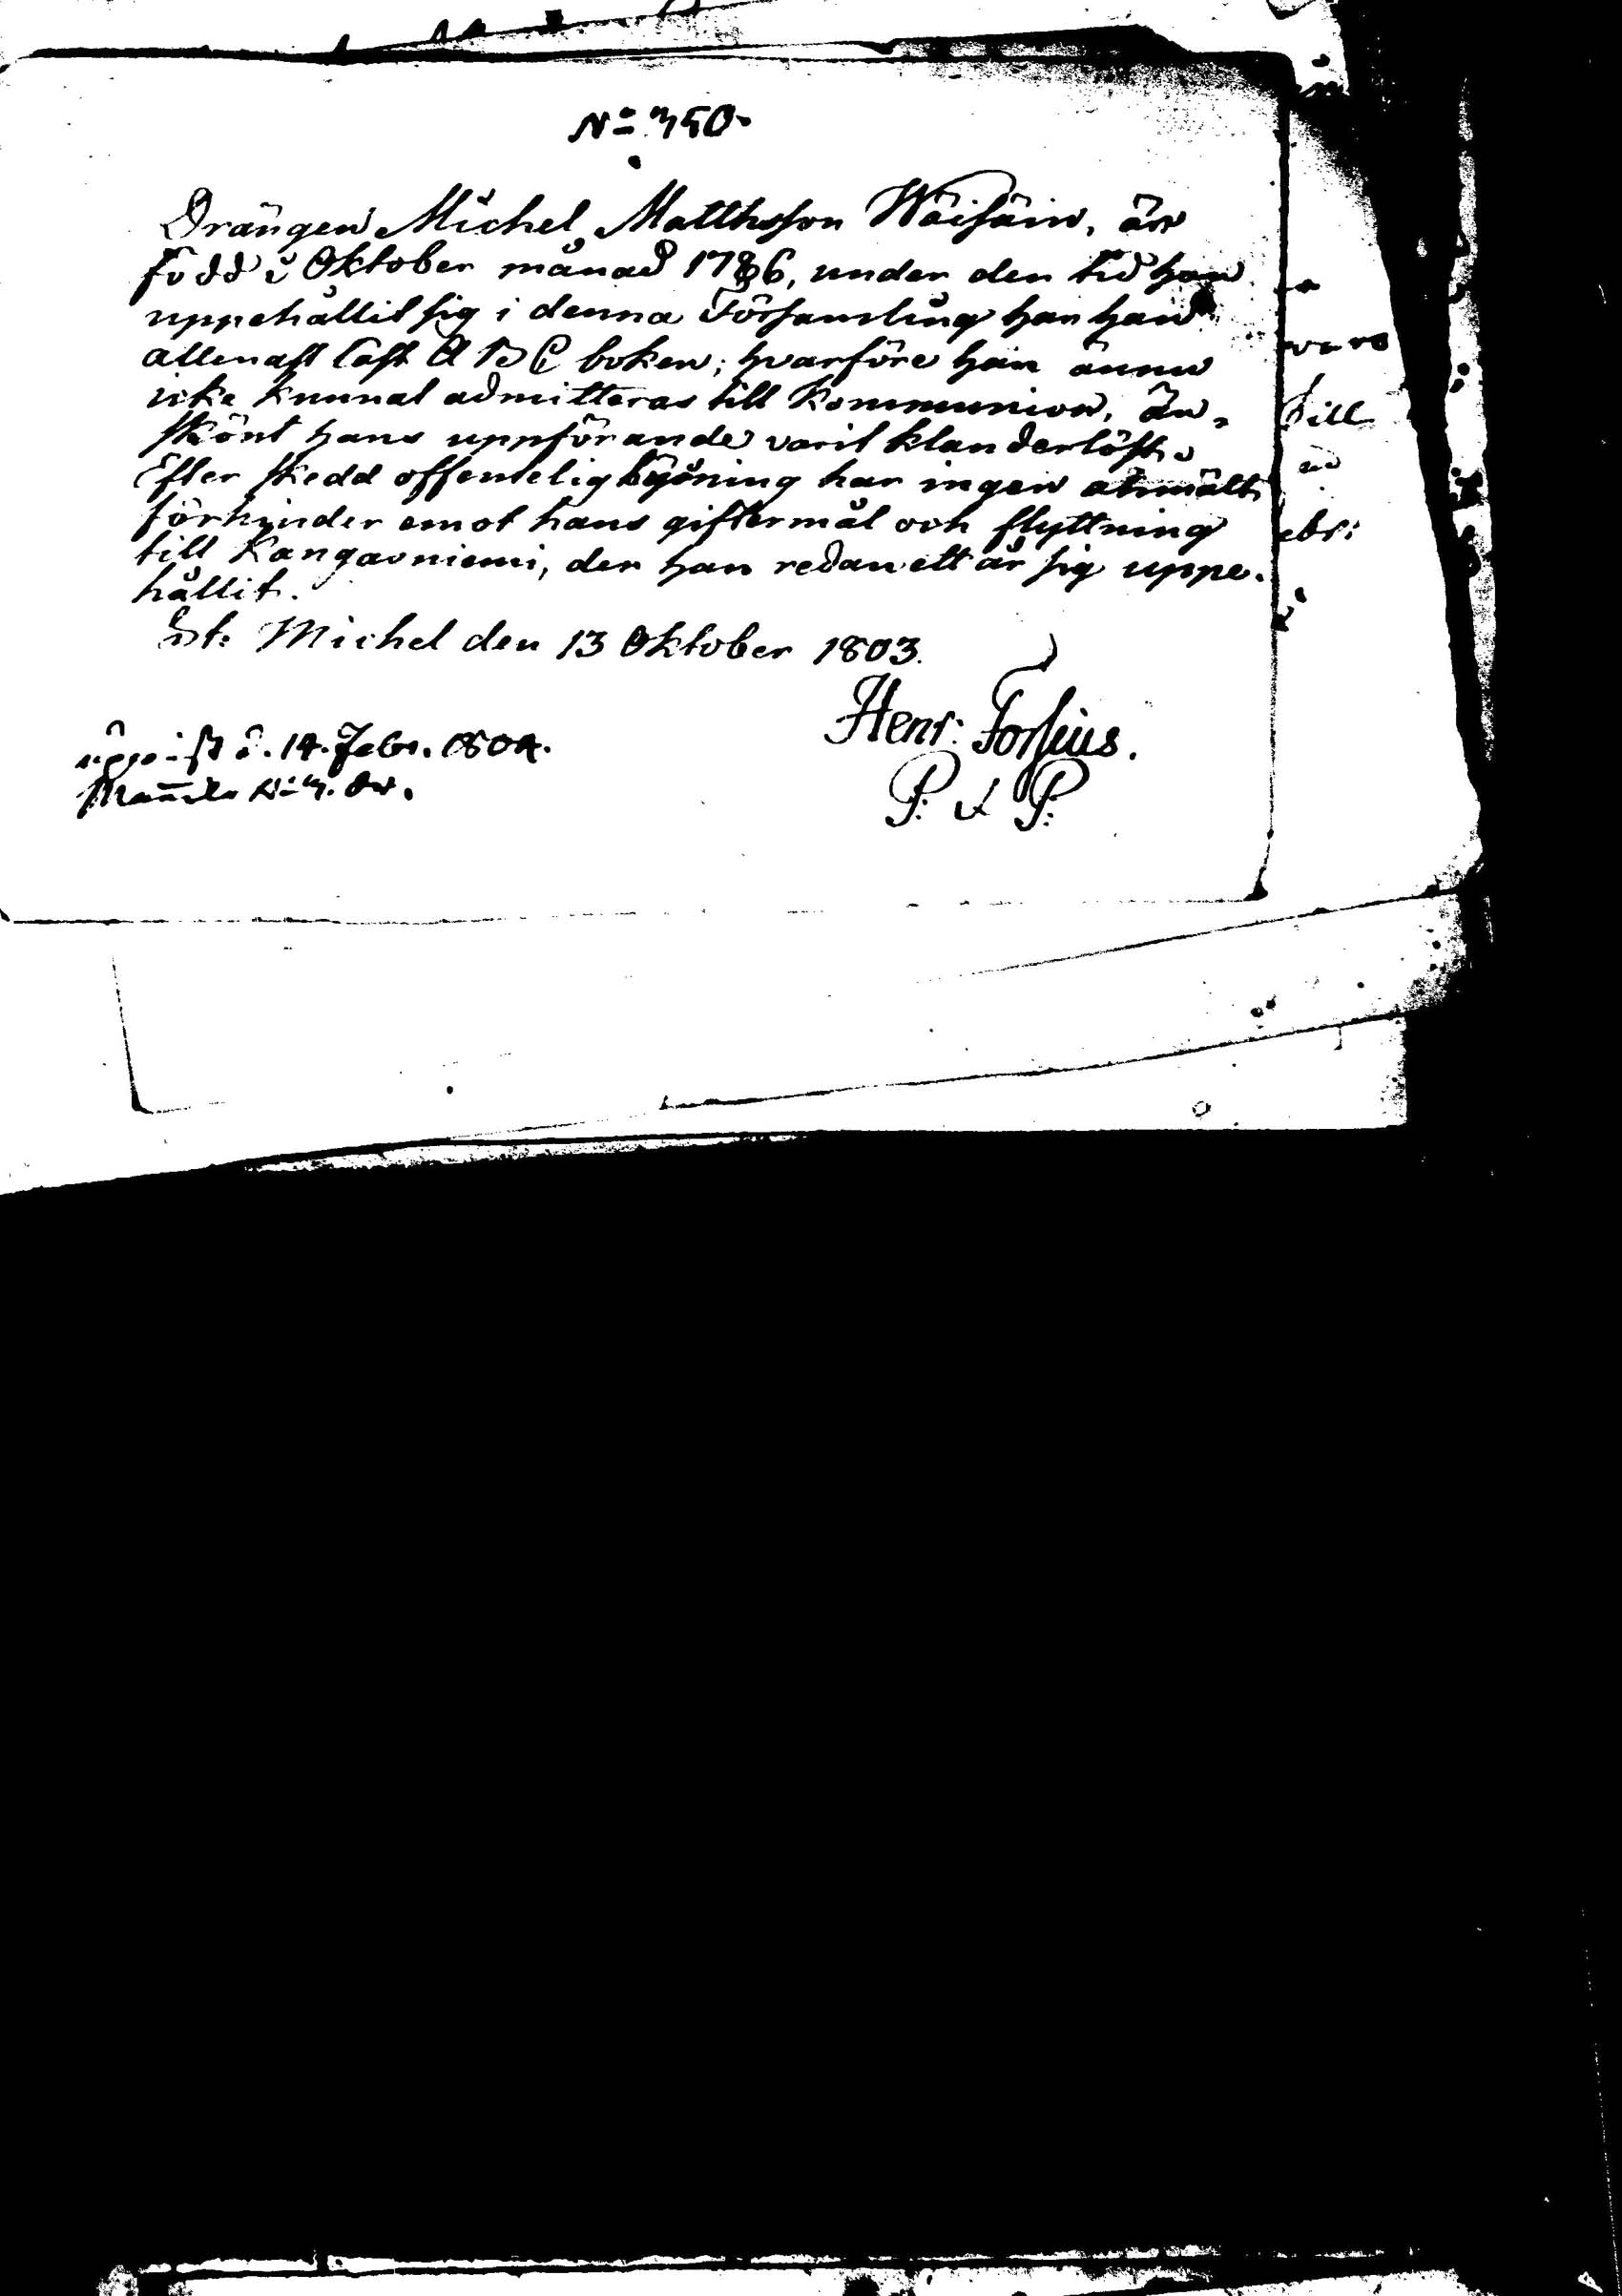 No 350.
Drängen Michel Matthsson Wäisäin, är
född i Oktober månad 1786, under den tid han
uppehållit sig i denna Församling har han
allenast läst A B C boken; hvarföre han ännu
icke kunnat admitteras till Kommunion, än-
skönt hans uppförande varit klanderlöst.
Efter skedd offentelig lysning har ingen anmält
förhinder emot hans giftermål och flyttning
till Kangasniemi, der han redan ett år sig uppe-
hållit.
St. Michel den 13 Oktober 1803.
Henr. Forsius.
P. & P.
d. 14. Febr. 1804.
No 3.
till
ebr: